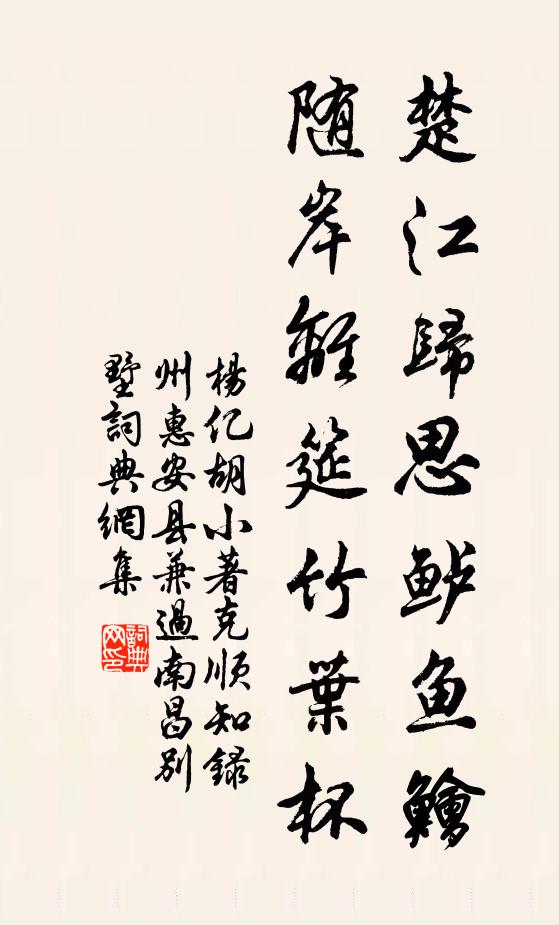 楚江歸思鲈鱼鱠
随岸離筵竹葉杯
楊亿胡小著克順知録
州惠安县兼過南昌别
墅詞典網集
詞典网印